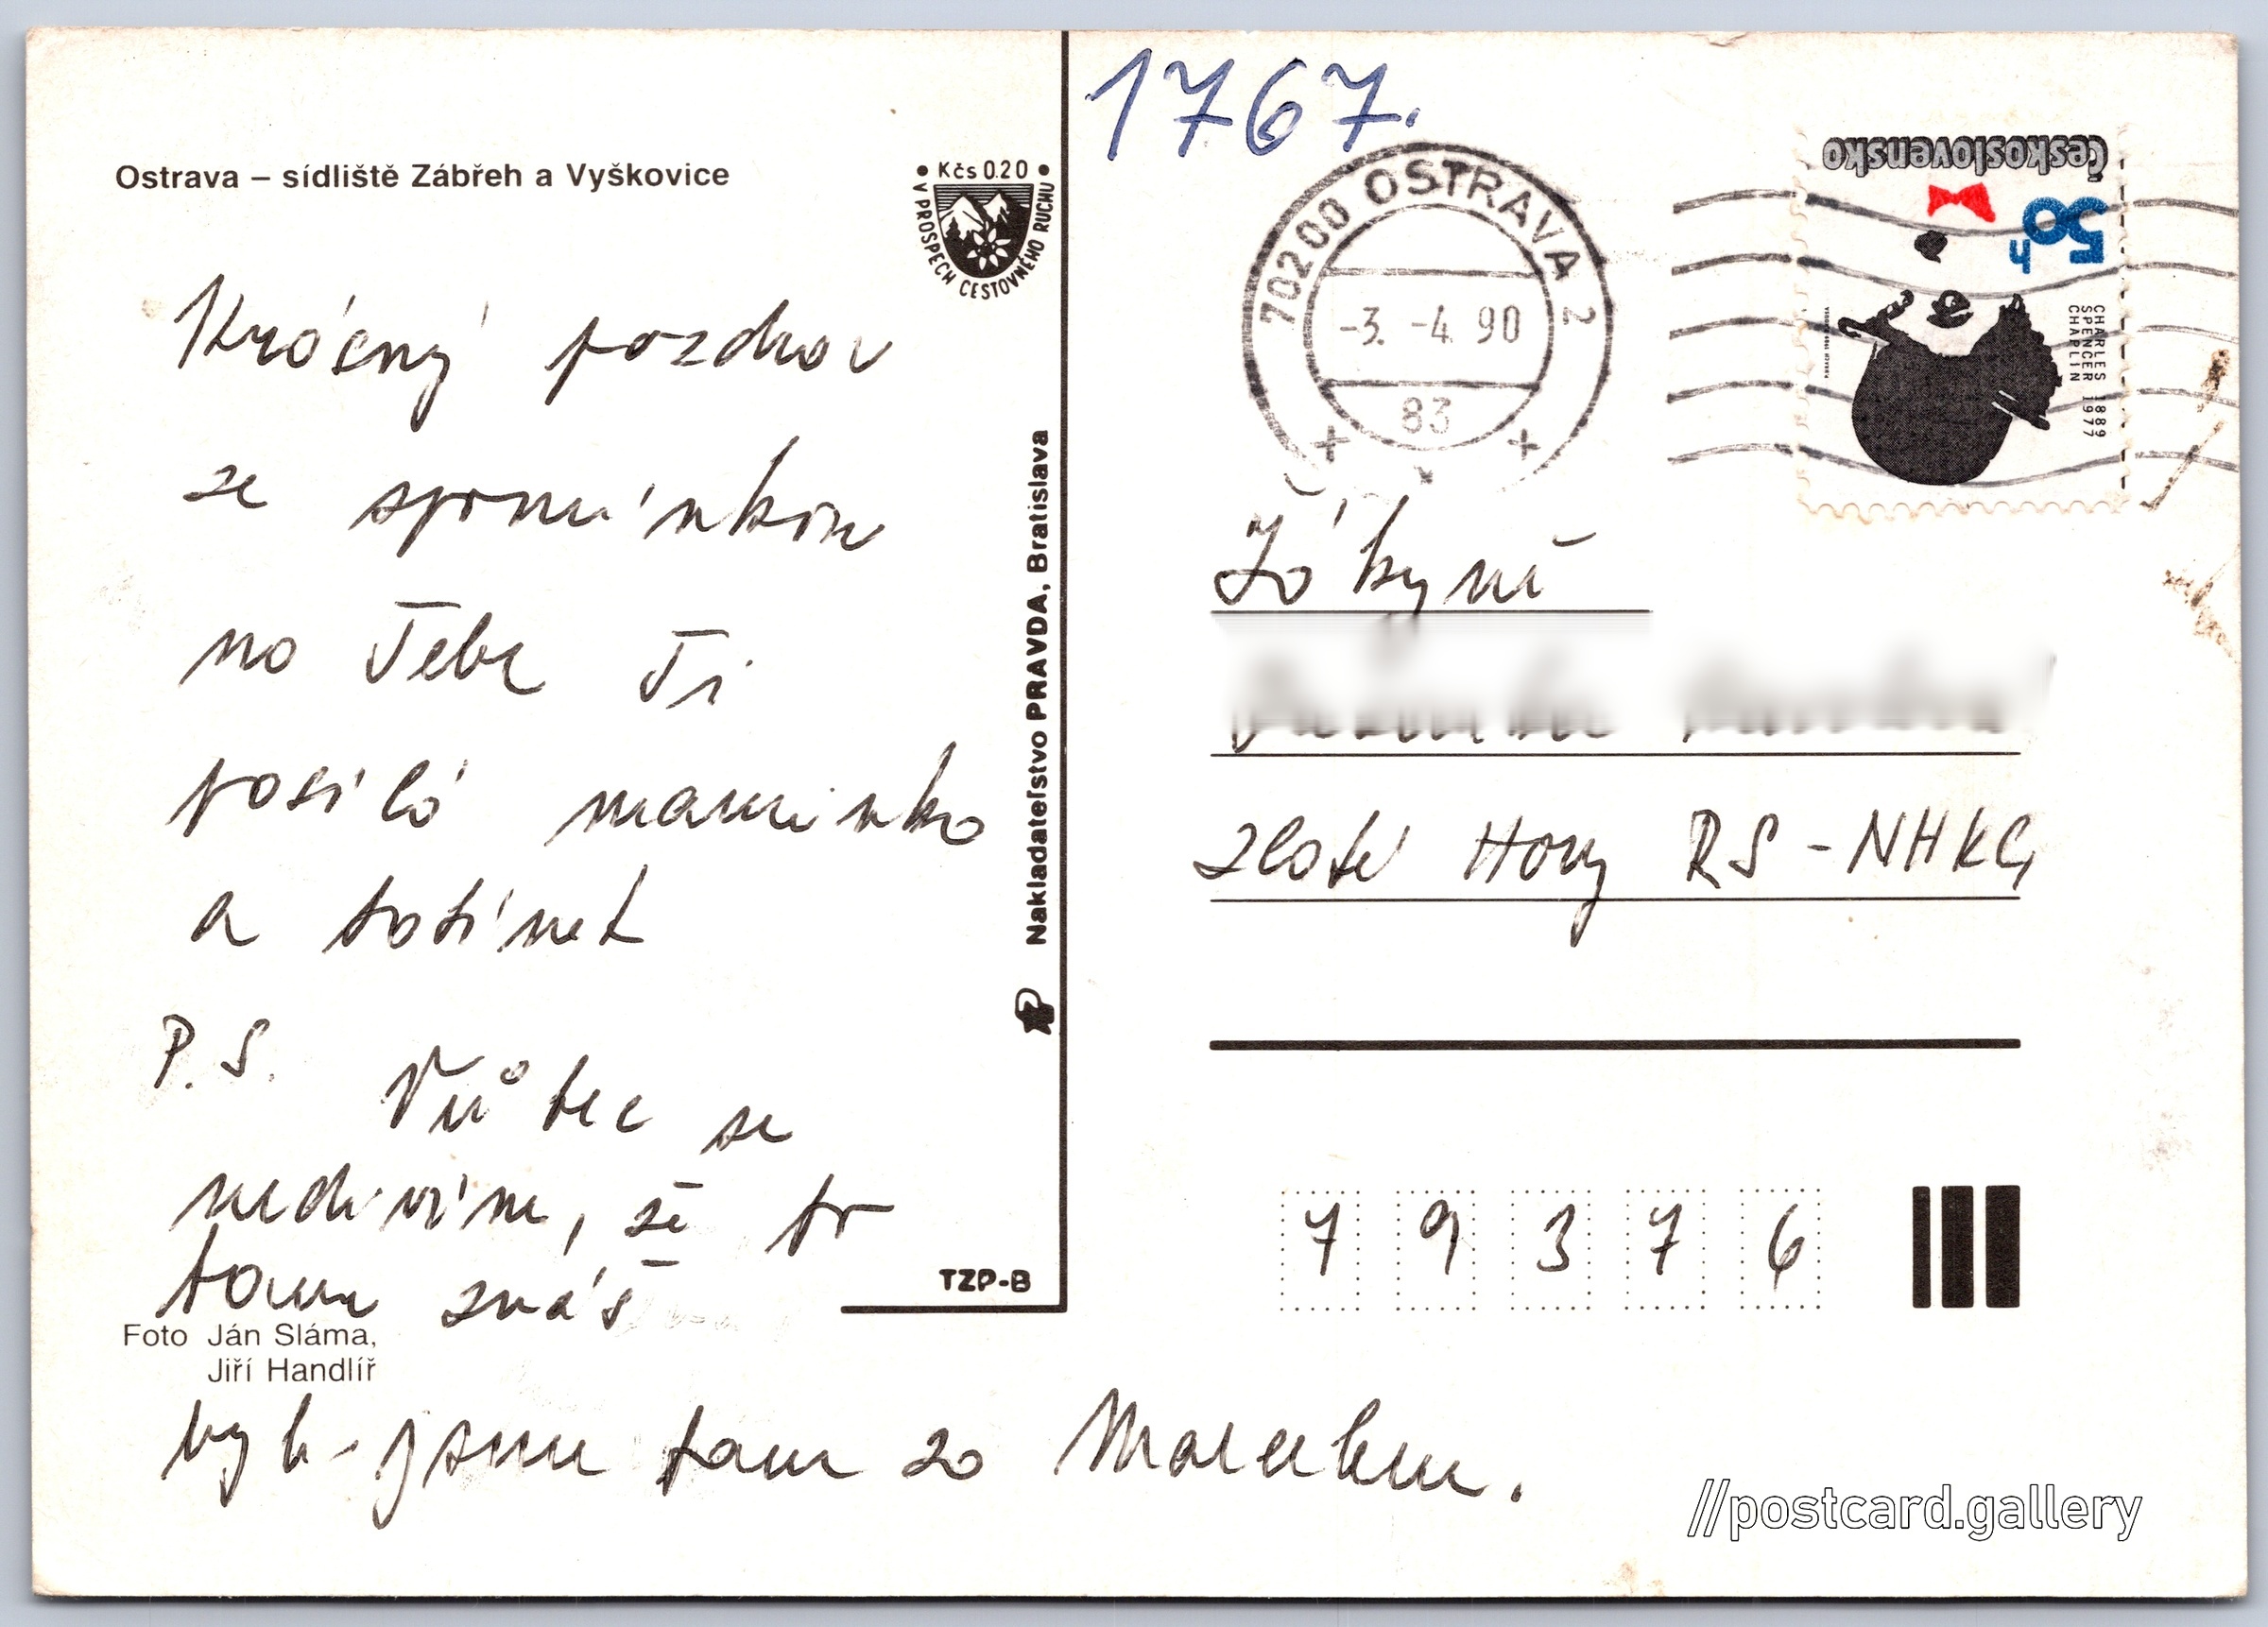 Ostrava – sídliště Zábřeh a Vyškovice
• Kčs 0.20 •
V PROSPECH CESTOVNÉHO RUCHU
Krásný pozdrav
ze spomínkou
na Tebe Ti
posílá maminka
a tatínek
P.S. Vůbec se
nedivím, že to
tam znáš
byli jsme tam za Marcelem.
Foto Ján Sláma,
Jiří Handlíř
Nakladateľstvo PRAVDA, Bratislava
TZP-B
1767.
70200 OSTRAVA 2
-3. -4. 90
83
Československo
50h
CHARLES 1889
SPENCER 1977
CHAPLIN
Žákyně
Zlaté Hory RS - NHKG
79376
//postcard.gallery